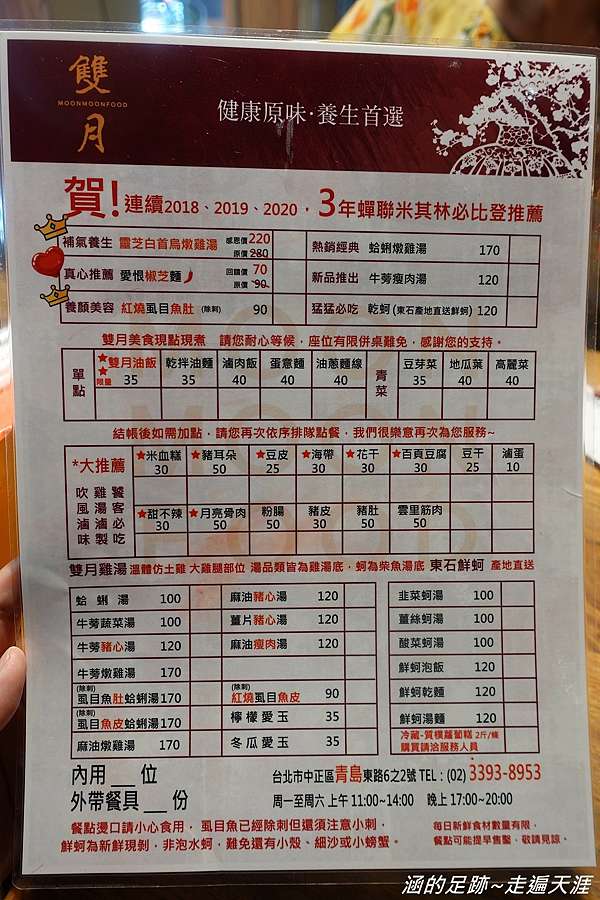 雙月
MOONMOONFOOD
健康原味·養生首選
賀!連續2018、2019、2020，3年蟬聯米其林必比登推薦
補氣養生 靈芝白首烏燉雞湯 感恩價220 原價280
熱銷經典 蛤蜊燉雞湯 170
真心推薦 愛恨椒芝麵 回饋價 70 原價 90
新品推出 牛蒡瘦肉湯 120
養顏美容 紅燒虱目魚肚 (除刺) 90
猛猛必吃 乾蚵(東石產地直送鮮蚵) 120
雙月美食現點現煮　請您耐心等候，座位有限併桌難免，感謝您的支持。
單點 ★★限量 雙月油飯 35 乾拌油麵 35 滷肉飯 40 蛋意麵 40 油蔥麵線 40 青菜 豆芽菜 35 地瓜葉 40 高麗菜 40
結帳後如需加點，請您再次依序排隊點餐，我們很樂意再次為您服務~
*大推薦 ★米血糕 30 ★豬耳朵 50 ★豆皮 25 ★海帶 30 ★花干 30 ★百頁豆腐 30 豆干 25 滷蛋 10
吹風滷味 雞湯滷製 饕客必吃
★甜不辣 30 ★月亮骨肉 50 粉腸 50 豬皮 30 豬肚 50 雲里筋肉 50
雙月雞湯 溫體仿土雞 大雞腿部位 湯品類皆為雞湯底，蚵為柴魚湯底 東石鮮蚵 產地直送
蛤蜊湯 100 麻油豬心湯 120 韭菜蚵湯 100
牛蒡蔬菜湯 100 薑片豬心湯 120 薑絲蚵湯 100
牛蒡豬心湯 120 麻油瘦肉湯 120 酸菜蚵湯 100
牛蒡燉雞湯 170 鮮蚵泡飯 120
(除刺) 虱目魚肚蛤蜊湯170 (除刺) 紅燒虱目魚皮 90 鮮蚵乾麵 120
(除刺) 虱目魚皮蛤蜊湯170 檸檬愛玉 35 鮮蚵湯麵 120
麻油燉雞湯 170 冬瓜愛玉 35 冷藏-質樸蘿蔔糕 2斤/條
購買請洽服務人員
內用___位
外帶餐具___份
台北市中正區青島東路6之2號 TEL：(02) 3393-8953
周一至周六 上午 11:00~14:00　晚上 17:00~20:00
餐點燙口請小心食用，虱目魚已經除刺但還須注意小刺，
鮮蚵為新鮮現剝，非泡水蚵，難免還有小殼、細沙或小螃蟹。
每日新鮮食材數量有限，
餐點可能提早售鑿，敬請見諒。
涵的足跡~走遍天涯